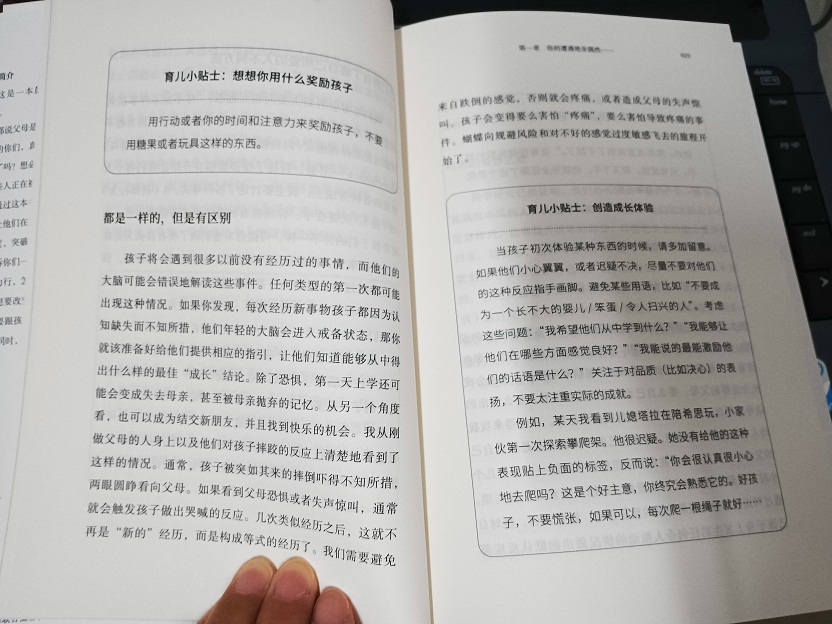 简介
这是一本
育儿小贴士：想想你用什么奖励孩子
用行动或者你的时间和注意力来奖励孩子，不要
用糖果或者玩具这样的东西。
都是一样的，但是有区别
孩子将会遇到很多以前没有经历过的事情，而他们的
大脑可能会错误地解读这些事件。任何类型的第一次都可能
出现这种情况。如果你发现，每次经历新事物孩子都因为认
知缺失而不知所措，他们年轻的大脑会进入戒备状态，那你
就该准备好给他们提供相应的指引，让他们知道能够从中得
出什么样的最佳“成长”结论。除了恐惧，第一天上学还可
能会变成失去母亲，甚至被母亲抛弃的记忆。从另一个角度
看，也可以成为结交新朋友，并且找到快乐的机会。我从刚
做父母的人身上以及他们对孩子摔跤的反应上清楚地看到了
这样的情况。通常，孩子被突如其来的摔倒吓得不知所措，
两眼圆睁看向父母。如果看到父母恐惧或者失声惊叫，通常
就会触发孩子做出哭喊的反应。几次类似经历之后，这就不
再是“新的”经历，而是构成等式的经历了。我们需要避免
第一章 你的遭遇绝非偶然
来自跌倒的感觉，否则就会疼痛，或者造成父母的失声惊
叫。孩子会变得要么害怕“疼痛”，要么害怕导致疼痛的事
件。蝴蝶向规避风险和对不好的感觉过度敏感飞去的旅程开
始了。
育儿小贴士：创造成长体验
当孩子初次体验某种东西的时候，请多加留意。
如果他们小心翼翼，或者迟疑不决，尽量不要对他们
的这种反应指手画脚。避免某些用语，比如“不要成
为一个长不大的婴儿/笨蛋/令人扫兴的人”。考虑
这些问题：“我希望他们从中学到什么？”“我能够让
他们在哪些方面感觉良好？”“我能说的最能激励他
们的话语是什么？”关注于对品质（比如决心）的表
扬，不要太注重实际的成就。
例如，某天我看到儿媳塔拉在陪希思玩，小家
伙第一次探索攀爬架。他很迟疑。她没有给他的这种
表现贴上负面的标签，反而说：“你会很认真很小心
地去爬吗？这是个好主意，你终究会熟悉它的。好孩
子，不要慌张，如果可以，每次爬一根绳子就好……
delete
home
pg up
pg dn
end